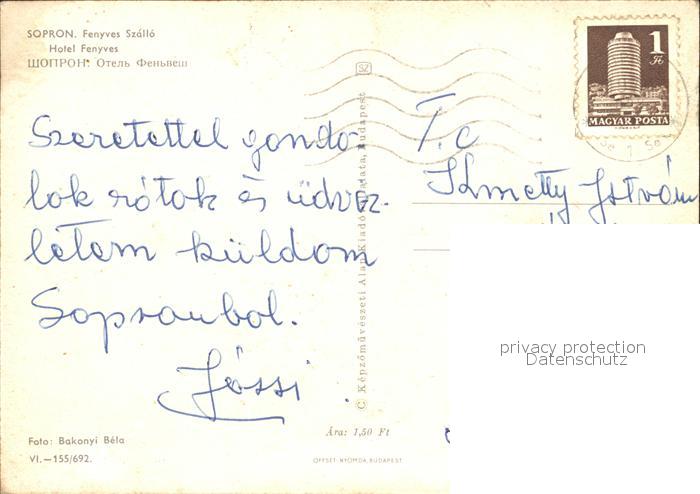 SOPRON. Fenyves Szálló
Hotel Fenyves
ШОПРОН: Отель Феньвеш
Szeretettel gondo-
lok rótok és üdvöz-
letem küldom
Sopronbol.
Jóssi
Foto: Bakonyi Béla
VI.—155/692.
SZ
© Képzőművészeti Alap Kiadóvállalata, Budapest
Ára: 1,50 Ft
OFFSET-NYOMDA, BUDAPEST
1 Ft
MAGYAR POSTA
T. c
Kmetty István
privacy protection
Datenschutz